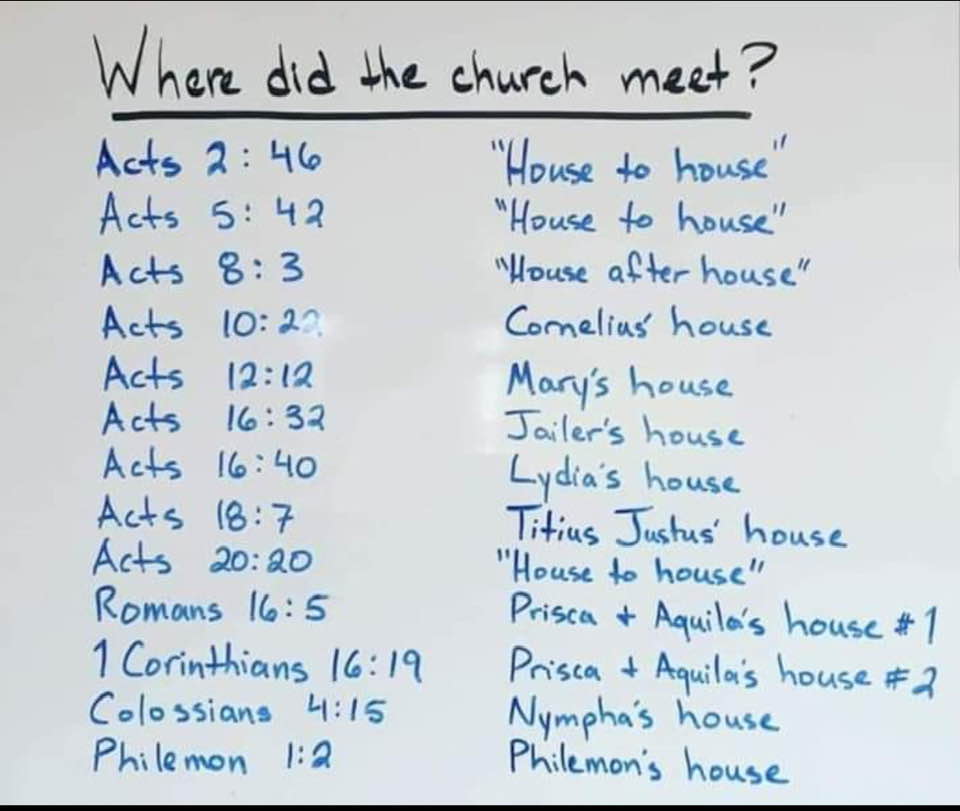 Where did the church meet?
Acts 2:46 "House to house"
Acts 5:42 "House to house"
Acts 8:3 "House after house"
Acts 10:22 Cornelius' house
Acts 12:12 Mary's house
Acts 16:32 Jailer's house
Acts 16:40 Lydia's house
Acts 18:7 Titius Justus' house
Acts 20:20 "House to house"
Romans 16:5 Prisca + Aquila's house #1
1 Corinthians 16:19 Prisca + Aquila's house #2
Colossians 4:15 Nympha's house
Philemon 1:2 Philemon's house